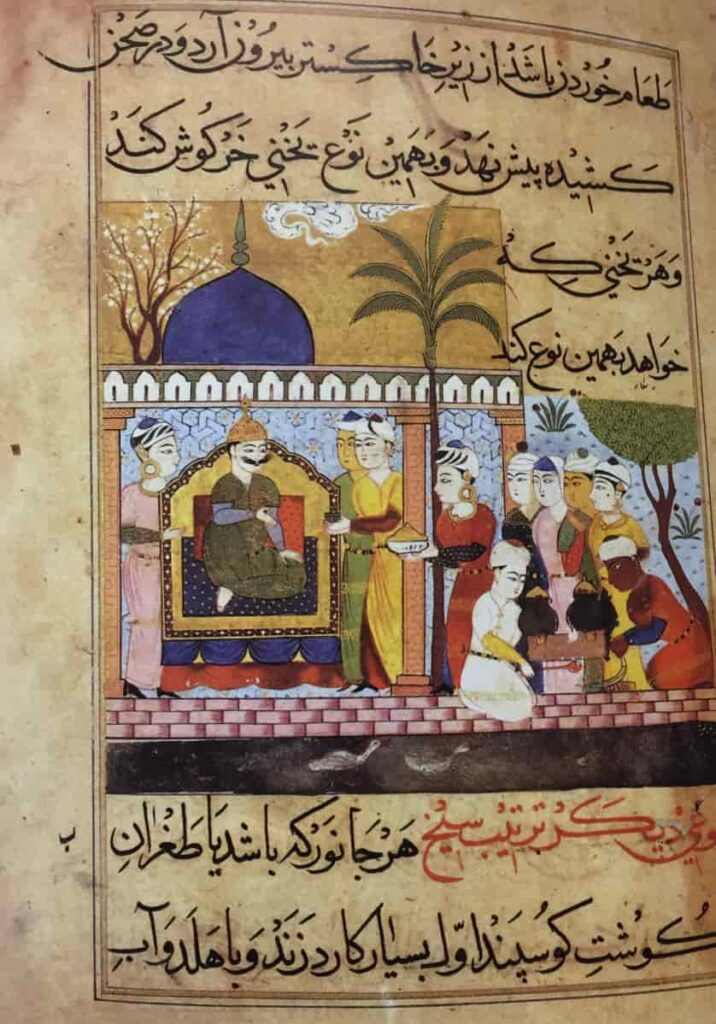 طعام خوردن باشد از زیر خاکستر بیرون آرد و در صحن
کشیده پیش نهد و بهمین نوع یخنی خرکوش کند
و هر یخنی که
خواهد بهمین نوع کند
نوعی دیکر ترتیب سیخ هر جانور که باشد یا طغران
کوشت کوسپند اول بسیار کارد زند و با هلد و آب
ب